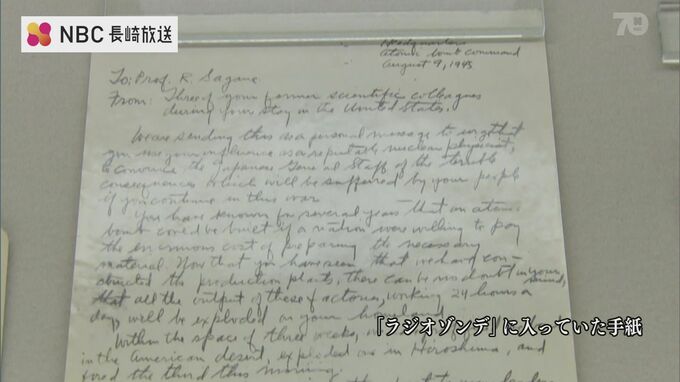 NBC 長崎放送
Headquarters
Atomic bomb command
August 9, 1945
To: Prof. R. Sagane
From: Three of your former scientific colleagues
during your stay in the United States.
We are sending this as a personal message to urge that
you use your influence as a reputable nuclear physicist,
to convince the Japanese General Staff of the terrible
consequences which will be suffered by your people
if you continue in this war.
You have known for several years that an atomic
bomb could be built if a nation were willing to pay
the enormous cost of preparing the necessary
material. Now that you have seen that we have con-
structed the production plants, there can be no doubt in your mind,
that all the output of these factories, working 24 hours a
day, will be exploded on your homeland.
Within the space of three weeks, we
in the American desert, exploded one in Hiroshima, and
fired the third this morning.
「ラジオゾンデ」に入っていた手紙